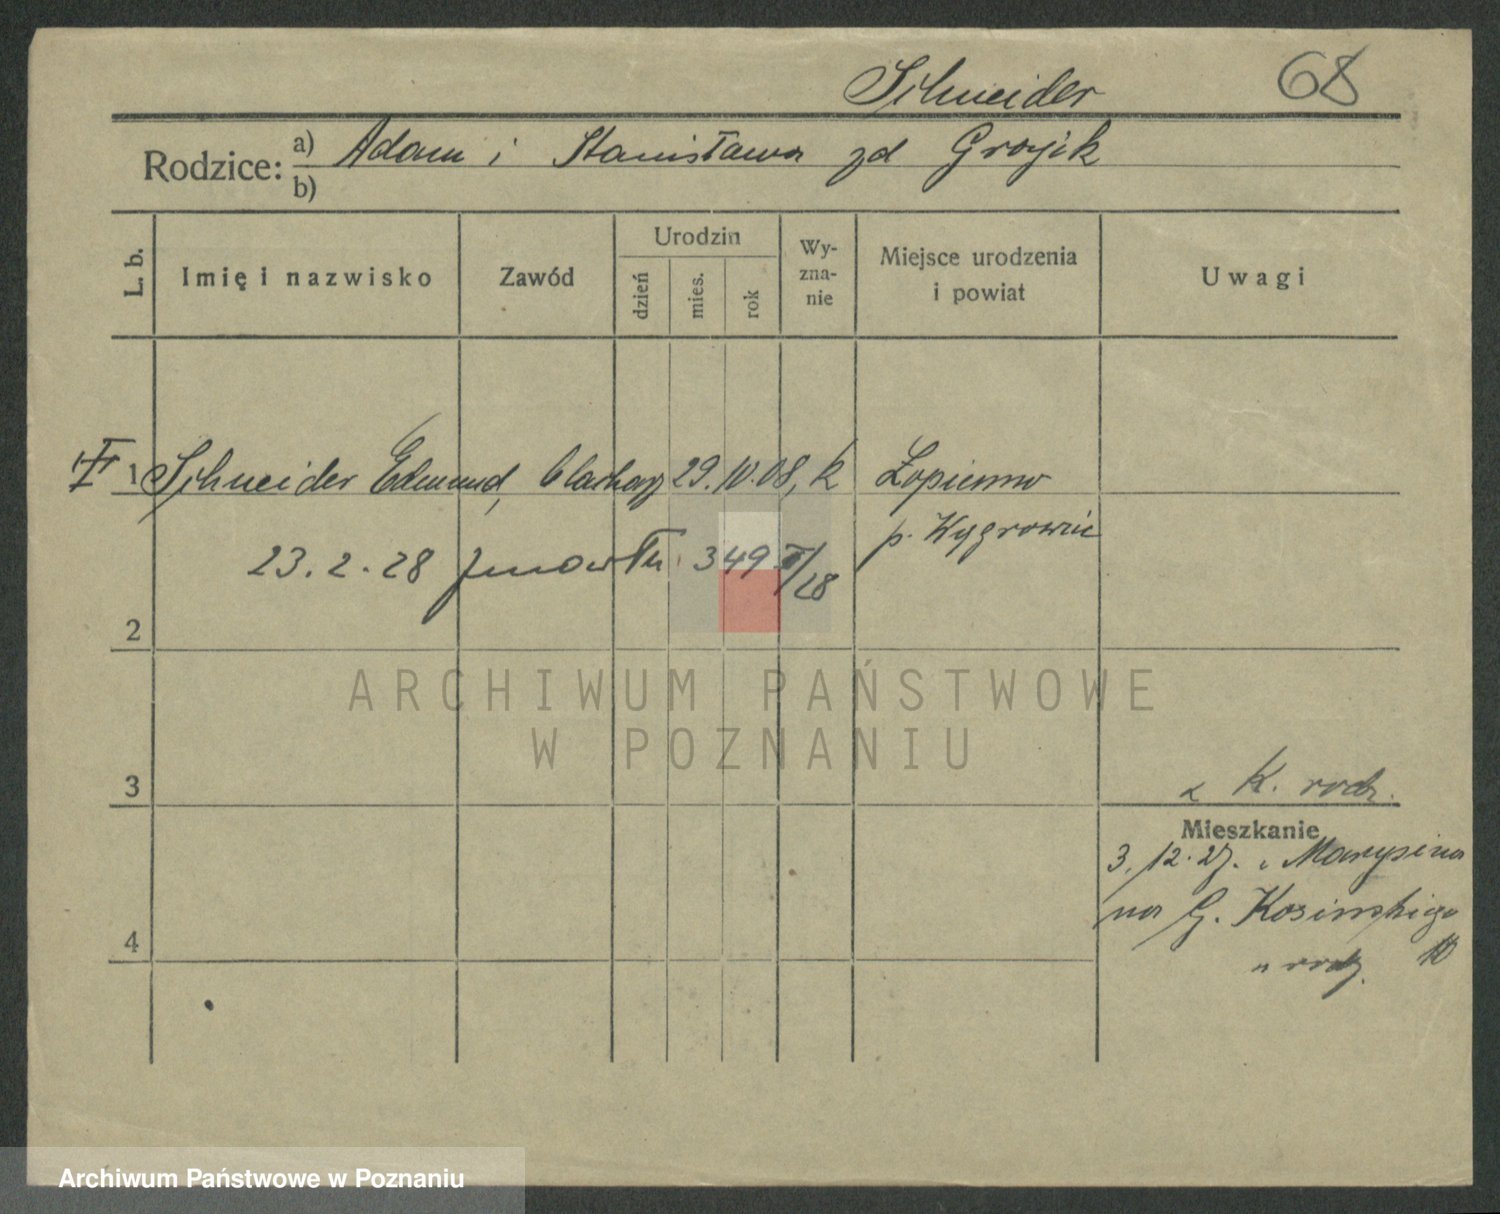 Schneider 68
Rodzice: a) Adam i Stanisława zd Grojik
b)
L. b. Imię i nazwisko Zawód Urodzin dzień mies. rok Wy-zna-nie Miejsce urodzenia i powiat Uwagi
1 Schneider Edmund, 29. 10. 08, k Łopienno
p. Wągrowiec
23. 2. 28 349 II/28
2
ARCHIWUM PAŃSTWOWE
W POZNANIU
3
K. rodz.
Mieszkanie
3. 12. 27. Marysina
na G. Kosińskiego
10
u rodz.
4
Archiwum Państwowe w Poznaniu